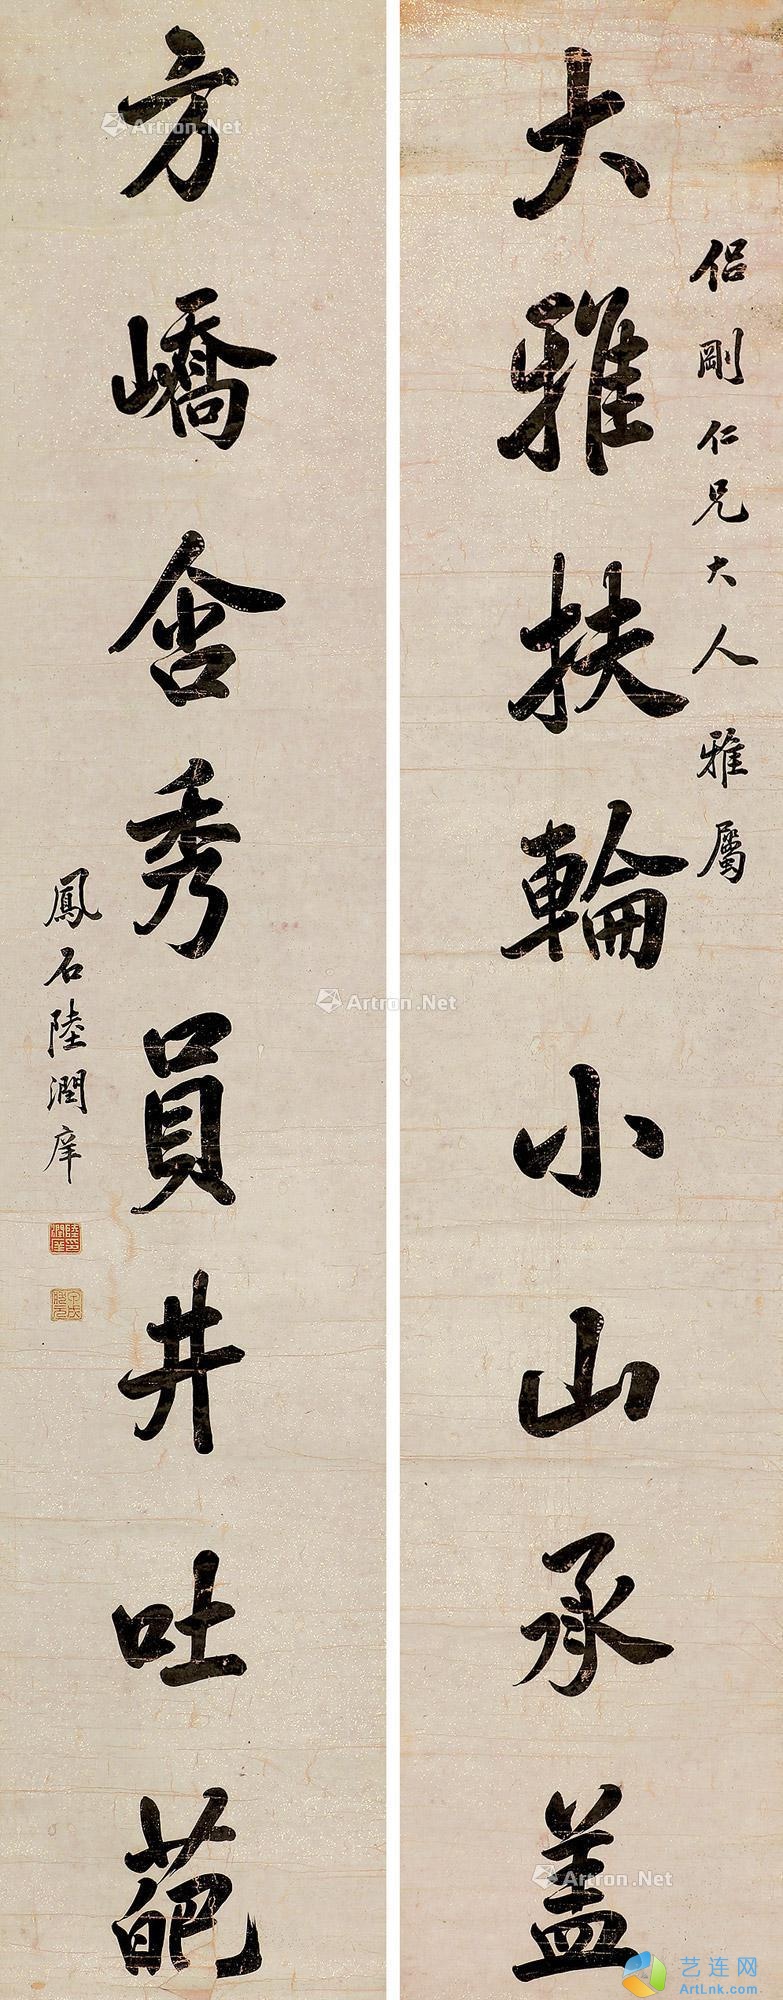 侶剛仁兄大人雅屬
大雅扶輪小山承蓋
方嶠含秀員井吐葩
鳳石陸潤庠
陸印潤庠
Artron.Net
Artron.Net
Artron.Net
艺连网
ArtLnk.com